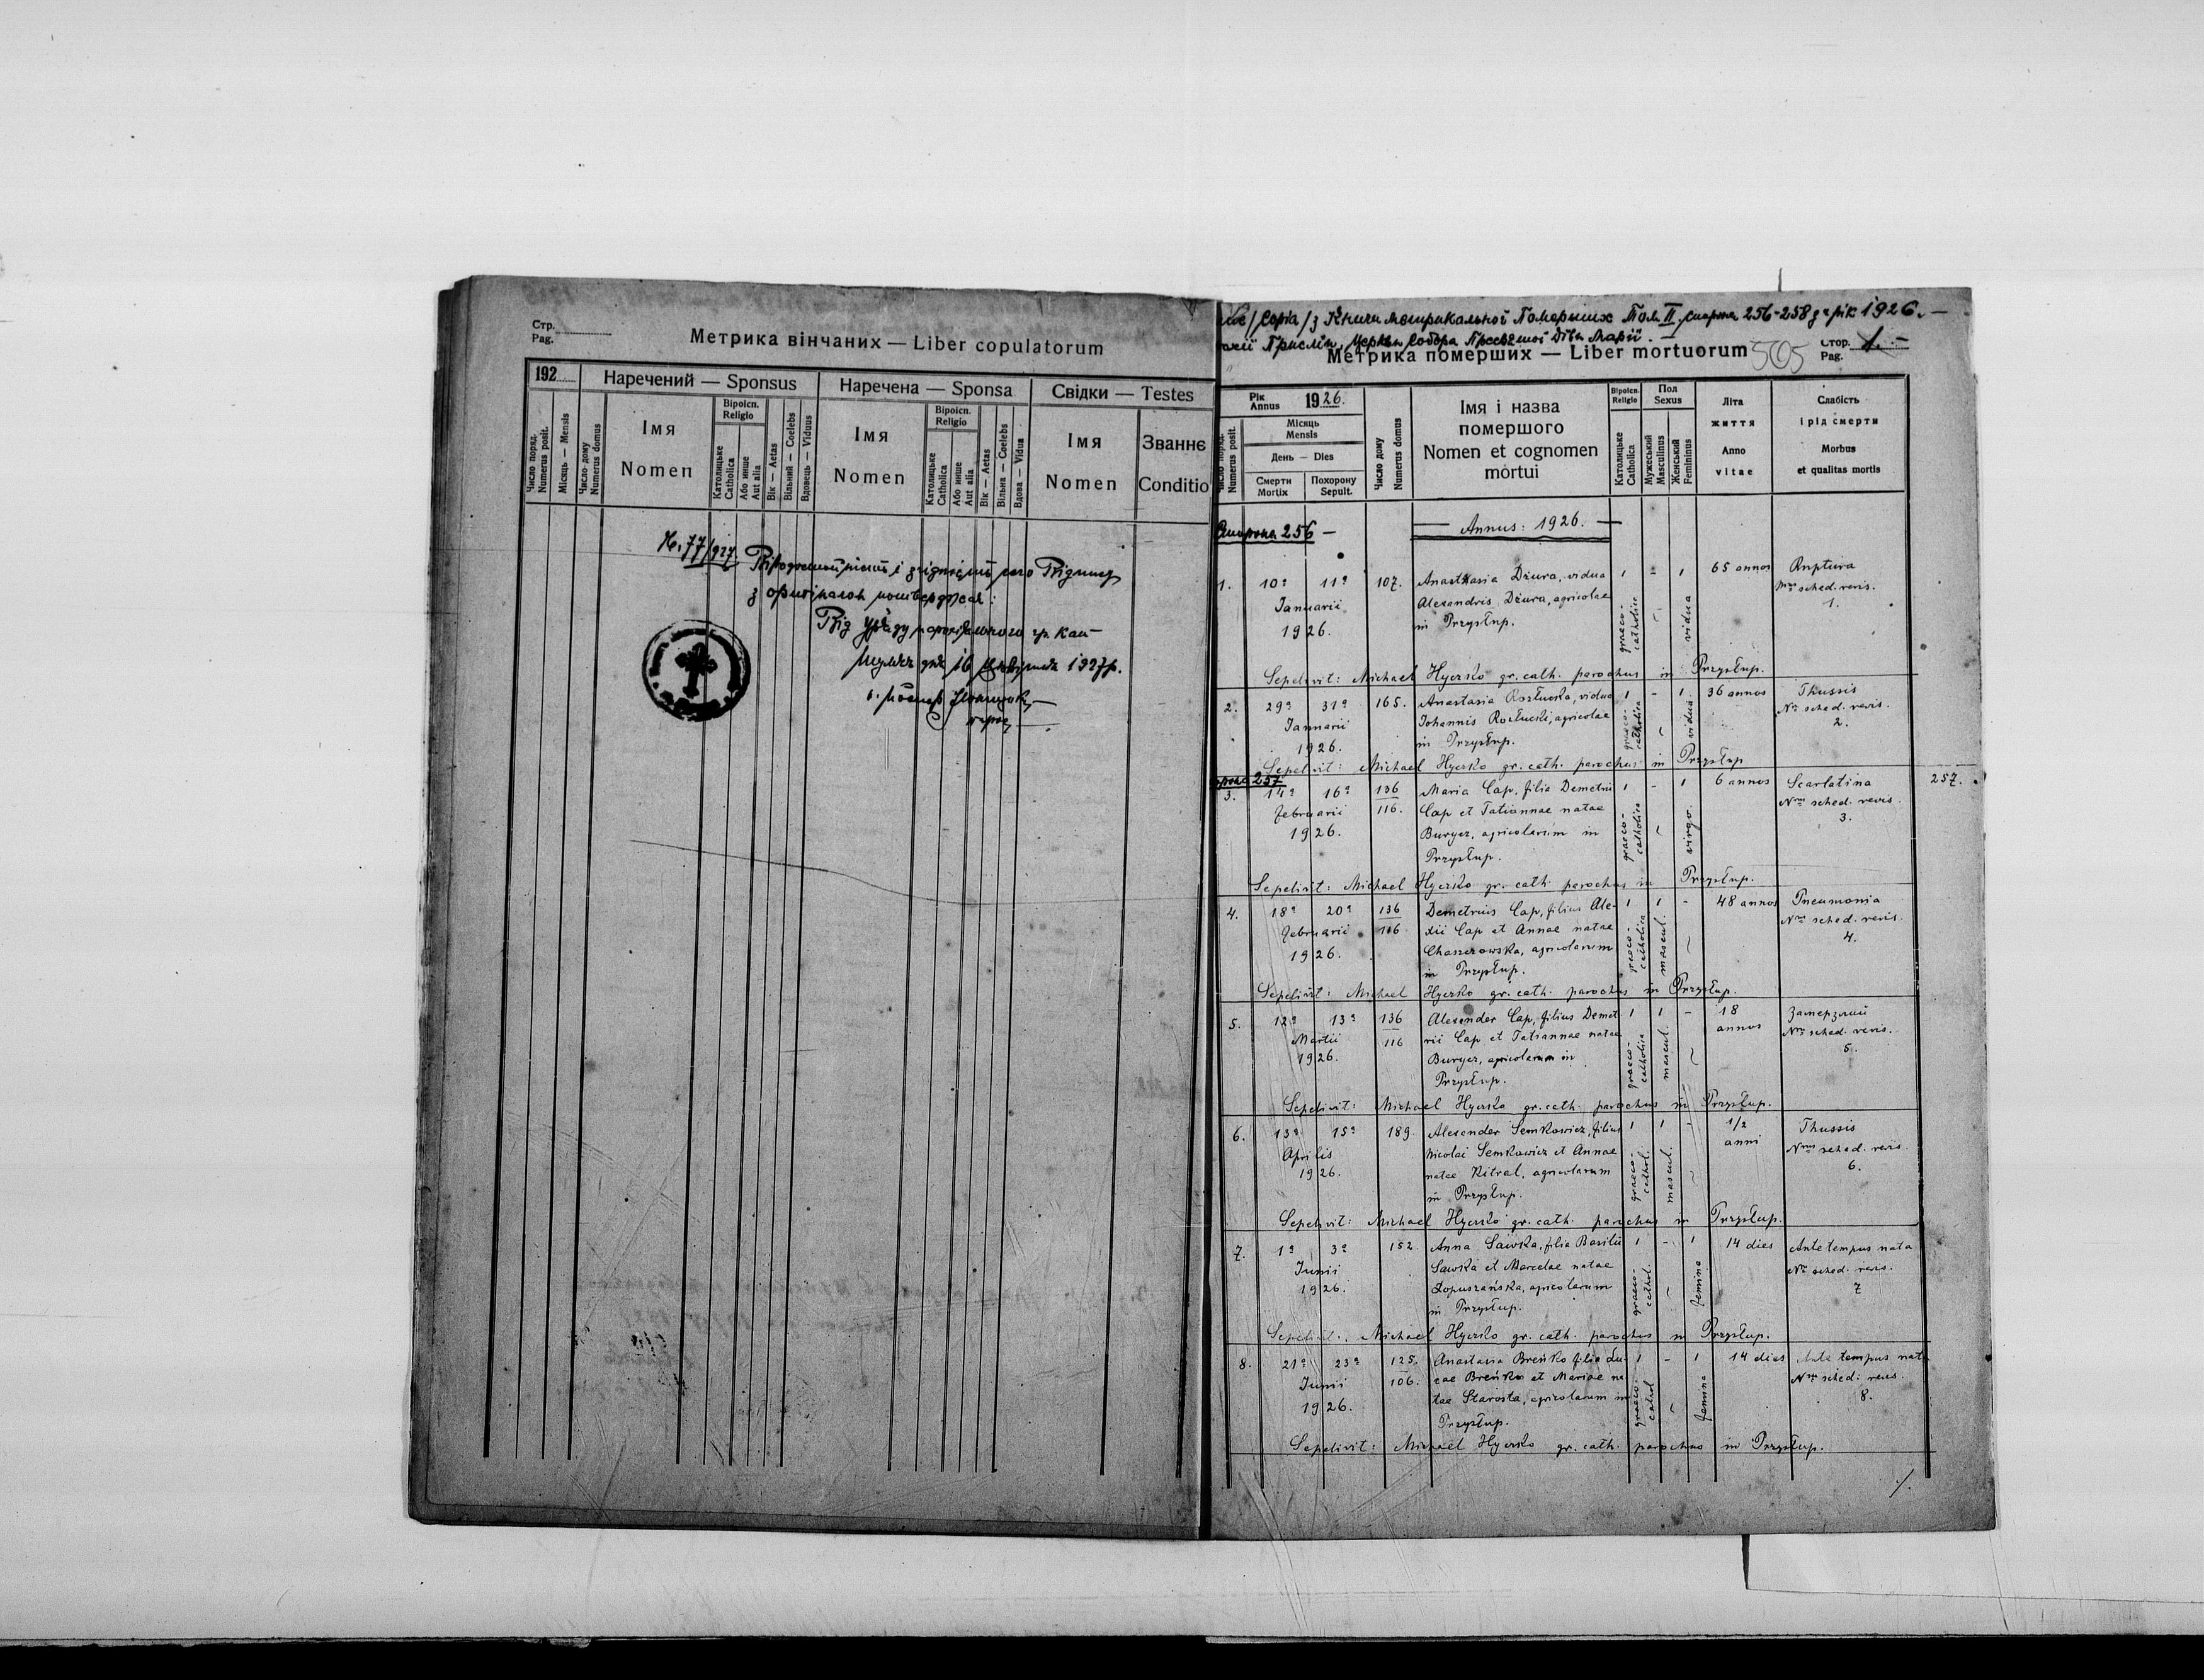 Стр.
Pag.
Метрика вінчаних — Liber copulatorum
192
Наречений — Sponsus
Наречена — Sponsa
Свідки — Testes
Число поряд.
Numerus posit.
Місяць — Mensis
Число дому
Numerus domus
Імя
Nomen
Віроісп.
Religio
Католицьке
Catholica
Або инше
Aut alia
Вік — Aetas
Вільний — Coelebs
Вдовець — Viduus
Імя
Nomen
Віроісп.
Religio
Католицьке
Catholica
Або инше
Aut alia
Вік — Aetas
Вільна — Coelebs
Вдова — Vidua
Імя
Nomen
Званнє
Conditio
Ч. 77/927.
з оригіналом
Від уряду гр. кат
дня 16 1927 р.
/Copia/ з Книги метрикальної Померших Том II, сторона 256-258 за рік 1926. —
Прислін, Церкви Собора Пресвятої Діви Марії. —
Метрика померших — Liber mortuorum
505
Стор.
Pag. 1. —
Рік
Annus 1926.
Число поряд.
Numerus posit.
Місяць
Mensis
День — Dies
Смерти
Mortix
Похорону
Sepult.
Число дому
Numerus domus
Імя і назва
помершого
Nomen et cognomen
mortui
Віроісп.
Religio
Католицьке
Catholica
Пол
Sexus
Мужеський
Masculinus
Женський
Femininus
Літа
життя
Anno
vitae
Слабість
і рід смерти
Morbus
et qualitas mortis
Сторона 256 —
— Annus: 1926. —
1. 10ª 11ª 107. Anastasia Dziura, vidua 1 - 1 65 annos Ruptura
Januarii Alexandris Dziura, agricolae Nrus sched. revis.
1926. in Przysłup. graeco-catholica vidua 1.
Sepelivit: Michael Hycrko gr. cath. parochus in Przysłup.
2. 29ª 31ª 165. Anastasia Rozłucka, vidua 1 - 1 36 annos Thussis
Januarii Johannis Rozłucki, agricolae Nrus sched. revis.
1926. in Przysłup. graeco-catholica vidua 2.
Sepelivit: Michael Hycrko gr. cath. parochus in Przysłup
257
3. 14ª 16ª 136 Maria Cap, filia Demetrii 1 - 1 6 annos Scarlatina 257.
Februarii 116. Cap et Tatiannae natae Nrus sched. revis.
1926. Buryez, agricolarum in graeco-catholica virgo 3.
Przysłup.
Sepelivit: Michael Hycrko gr. cath. parochus in Przysłup.
4. 18ª 20ª 136 Demetrius Cap, filius Ale- 1 1 - 48 annos Pneumonia
Februarii 116 xii Cap et Annae natae Nrus sched. revis.
1926. Chaszczowska, agricolarum graeco-catholica mascul. 4.
in Przysłup.
Sepelivit: Michael Hycrko gr. cath. parochus in Przysłup.
5. 12ª 13ª 136 Alexander Cap, filius Demet- 1 1 - 18 Замерзший
Martii 116 rii Cap et Tatiannae natae annos Nrus sched. revis.
1926. Buryez, agricolarum in graeco-catholica mascul. 5.
Przysłup.
Sepelivit: Michael Hycrko gr. cath. parochus in Przysłup.
6. 13ª 15ª 189. Alexander Semkowicz, filius 1 1 - 1/2 Thussis
Aprilis Nicolai Semkowicz et Annae anni Nrus sched. revis.
1926. natae Kitral, agricolarum graeco-cathol. mascul. 6.
in Przysłup.
Sepelivit: Michael Hycrko gr. cath. parochus in Przysłup.
7. 1ª 3ª 152. Anna Sawka, filia Basilii 1 - 1 14 dies Ante tempus nata
Junii Sawka et Marcelae natae Nrus sched. revis.
1926. Łopuszańska, agricolarum graeco-cathol. femina 7
in Przysłup.
Sepelivit: Michael Hycrko gr. cath. parochus in Przysłup.
8. 21ª 23ª 125. Anastasia Breńko filia Lu- 1 - 1 14 dies Ante tempus nata
Junii 106. cae Breńko et Mariae na- Nrus sched. revis.
1926. tae Starosta, agricolarum in graeco-cathol femina 8.
Przysłup.
Sepelivit: Michael Hycrko gr. cath. parochus in Przysłup.